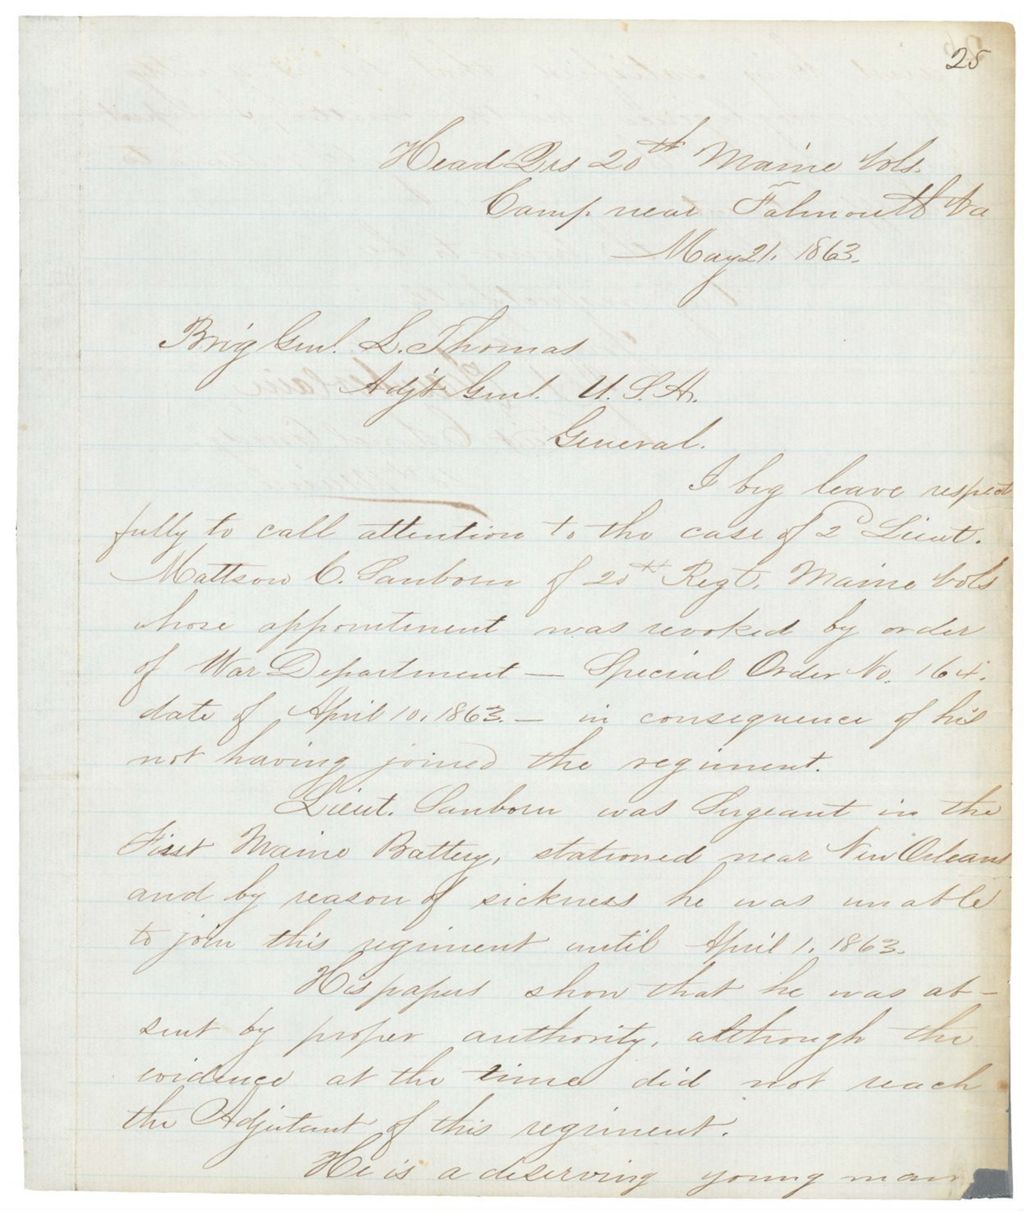 25
Head Qrs 20th Maine Vols.
Camp near Falmouth Va
May 21. 1863.
Brig Genl. L. Thomas
Adjt Genl. U.S.A.
General.
I beg leave respect
fully to call attention to the case of 2d Lieut.
Mattson C. Sanborn of 20th Regt. Maine Vols
whose appointment was revoked by order
of War Department — Special Order No. 164.
date of April 10. 1863 — in consequence of his
not having joined the regiment.
Lieut. Sanborn was Sergeant in the
First Maine Battery, stationed near New Orleans
and by reason of sickness he was unable
to join this regiment until April 1. 1863.
His papers show that he was ab-
sent by proper authority, although the
evidence at the time did not reach
the Adjutant of this regiment.
He is a deserving young man